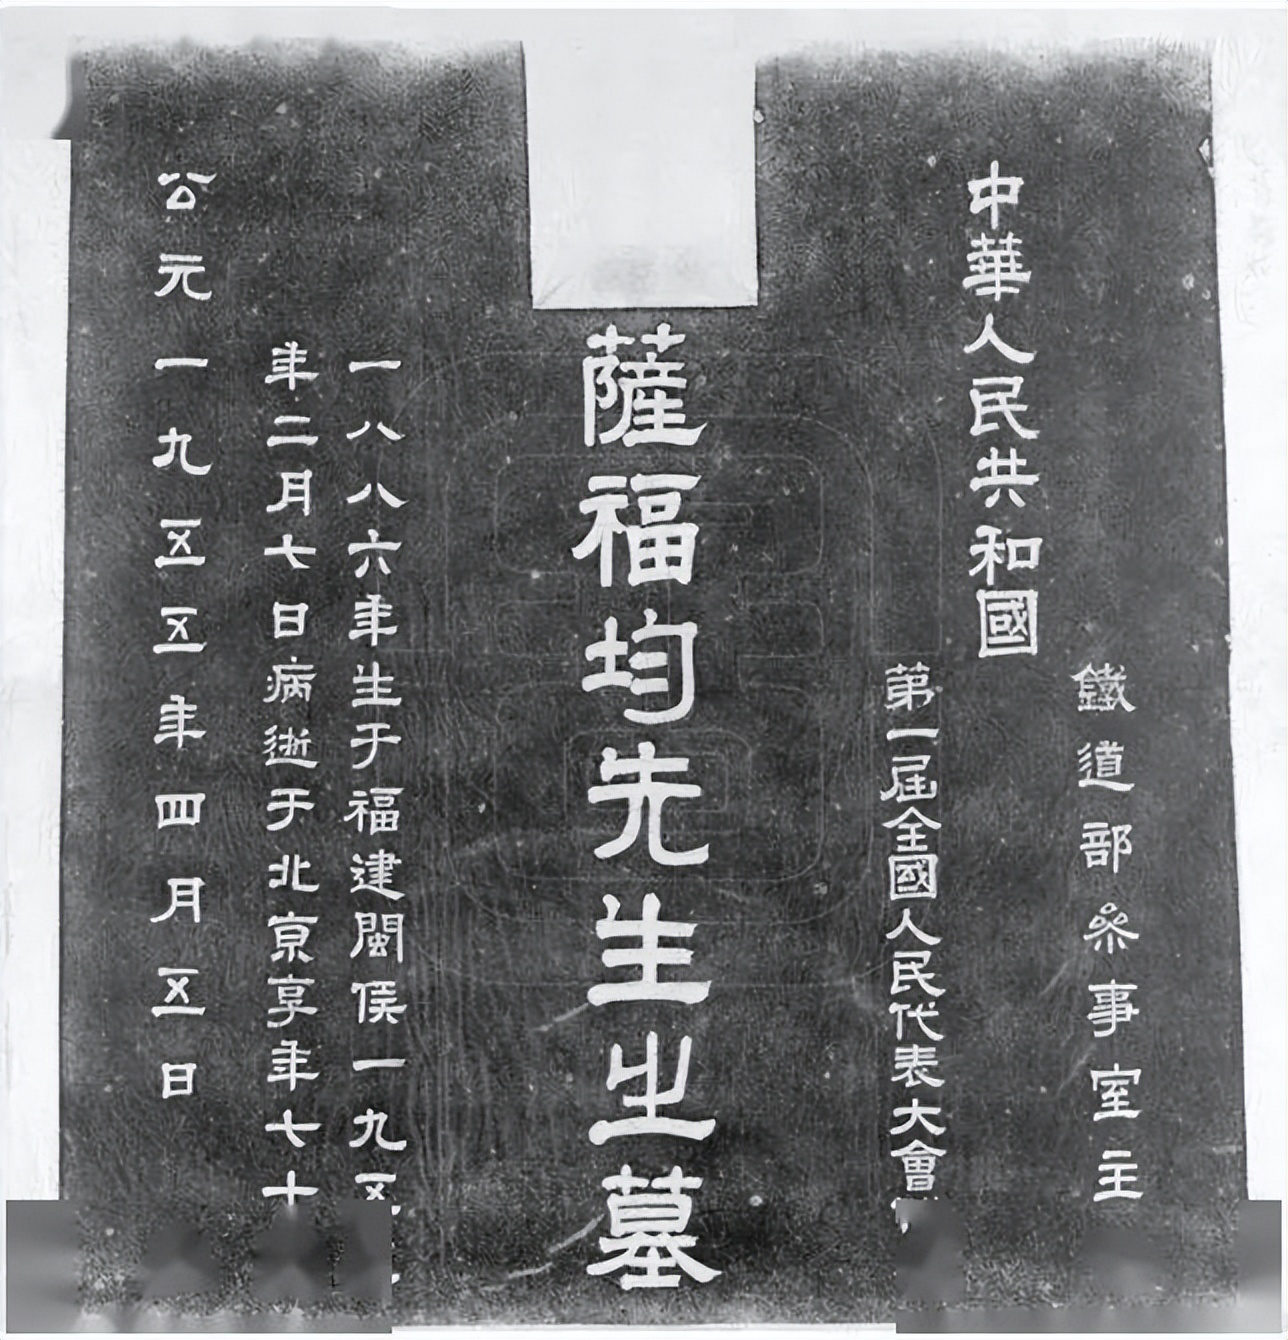 鐵道部參事室主
中華人民共和國
第一屆全國人民代表大會
薩福均先生之墓
一八八六年生于福建閩侯一九五
年二月七日病逝于北京享年七十
公元一九五五年四月五日